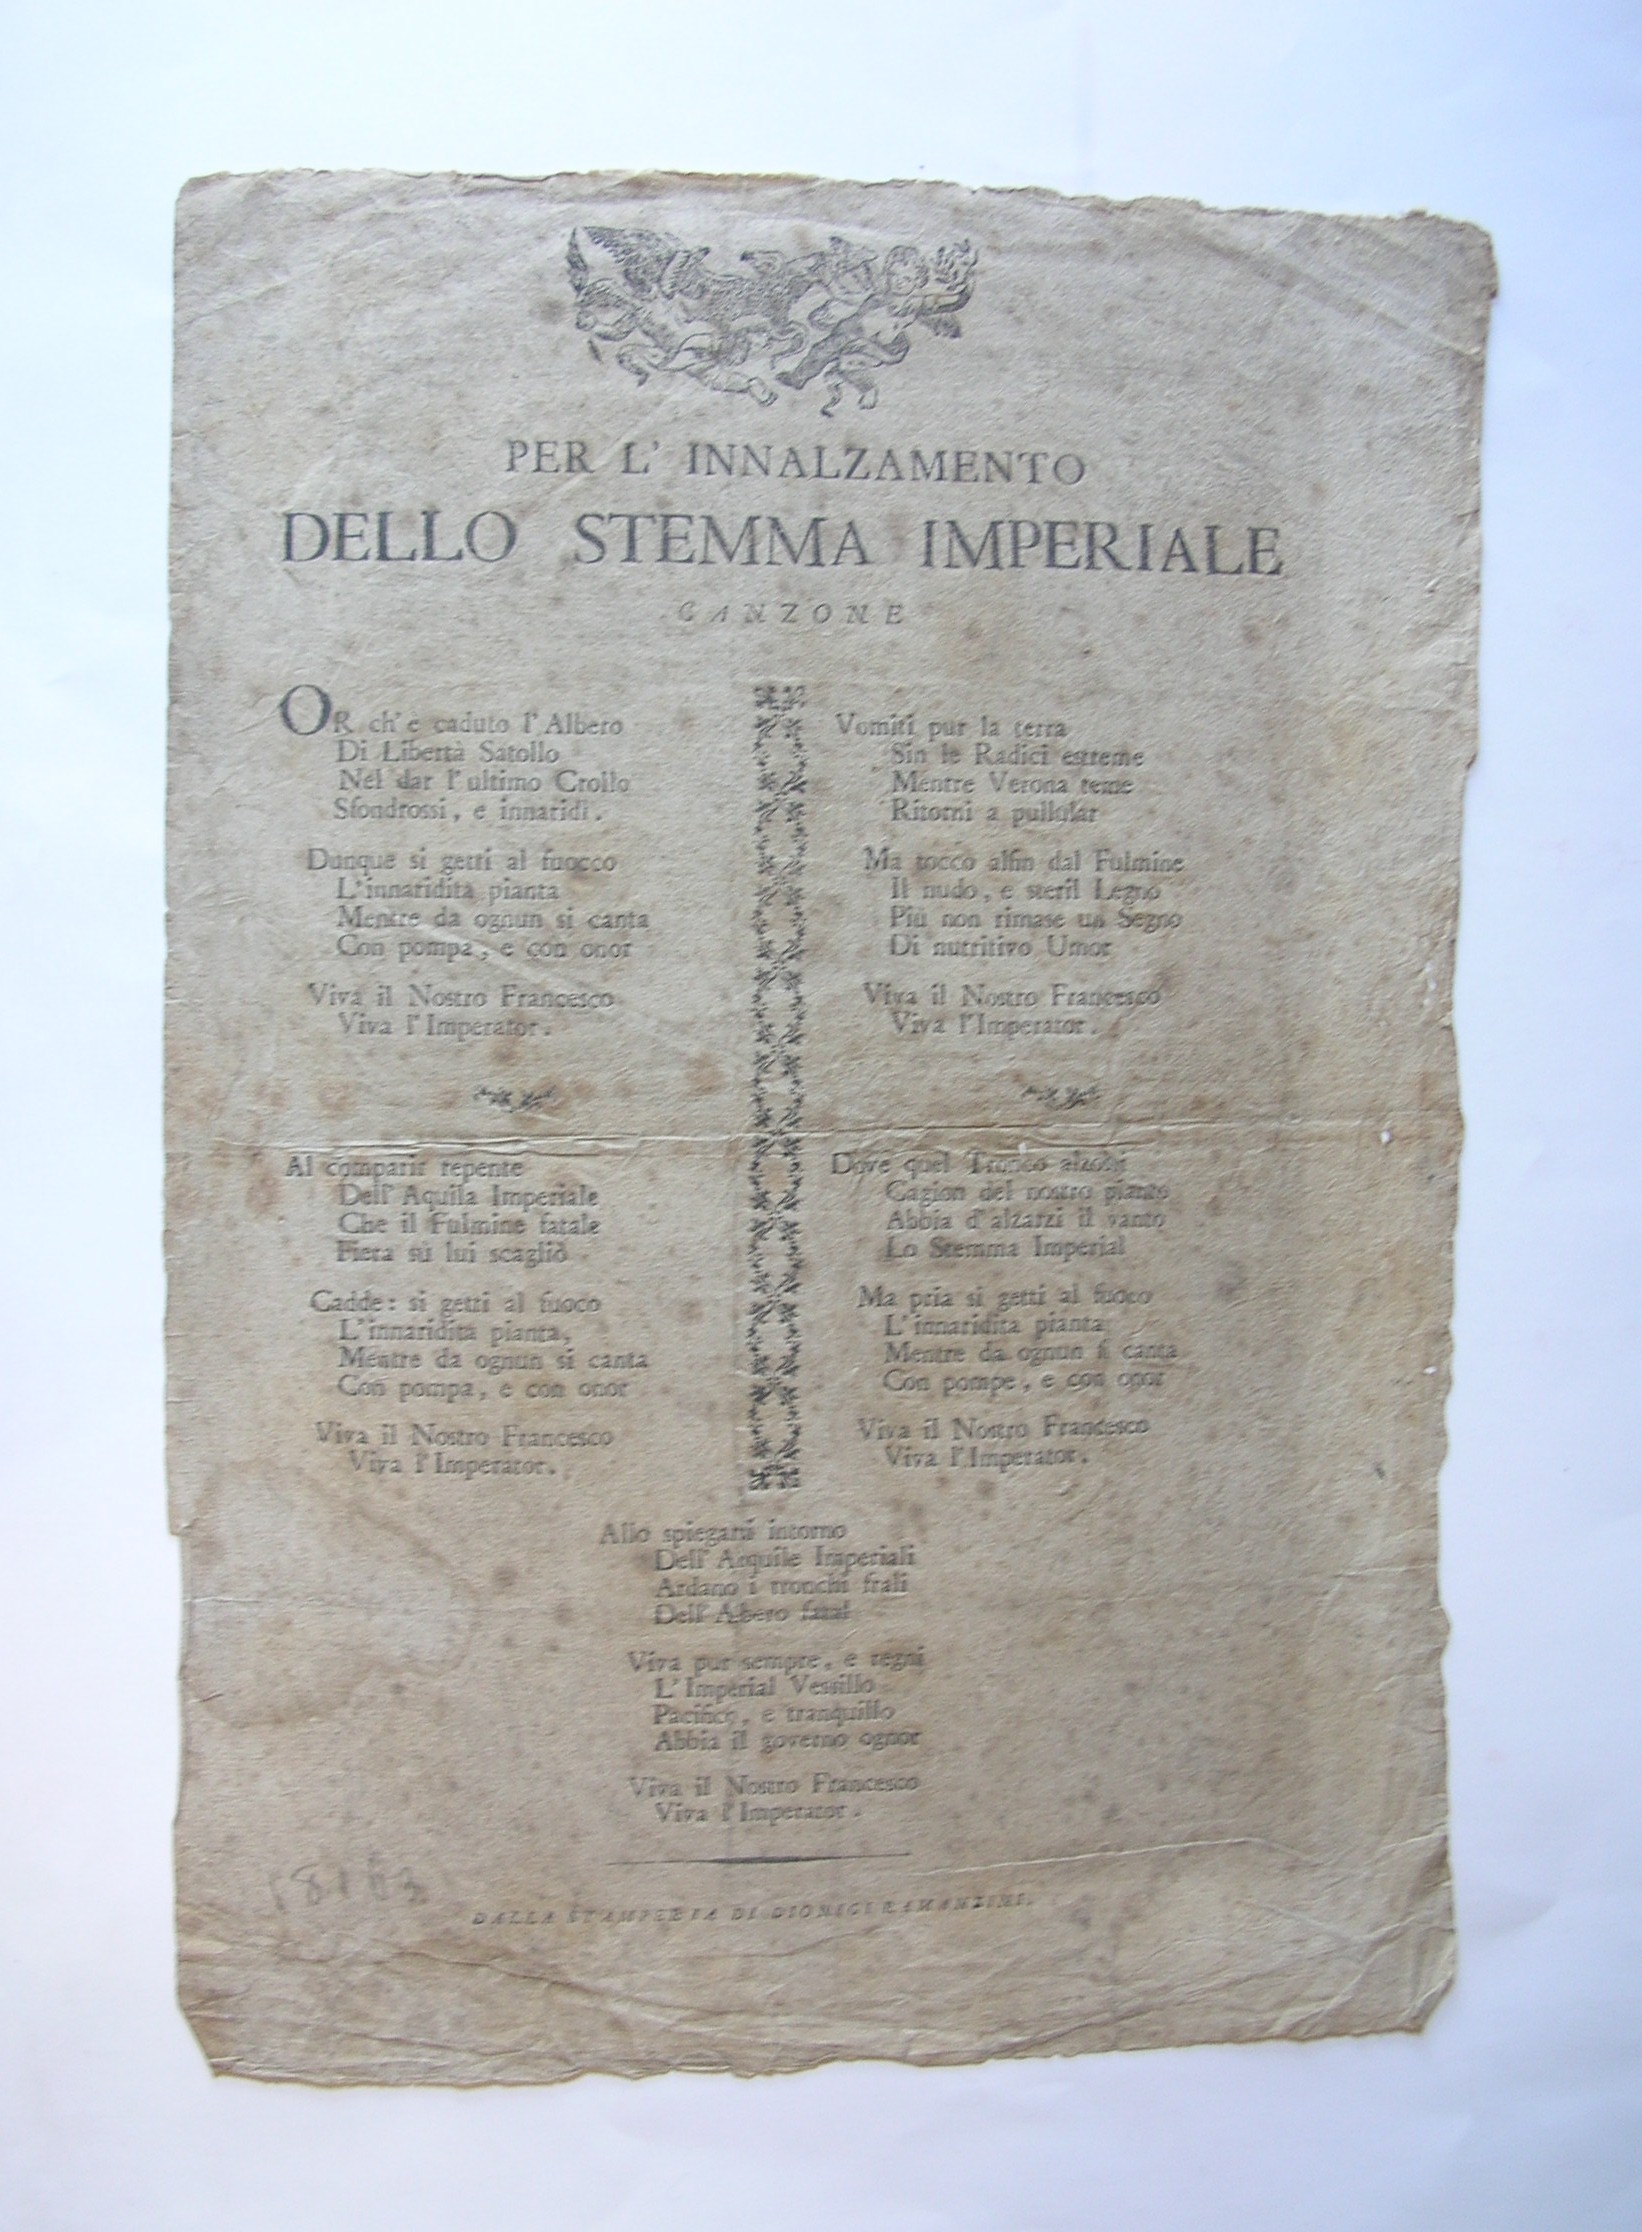 PER L' INNALZAMENTO
DELLO STEMMA IMPERIALE
CANZONE
OR ch'è caduto l'Albero
Di Libertà Satollo
Nel dar l'ultimo Crollo
Sfondrossi, e innaridì.
Dunque si getti al fuocco
L'innaridita pianta
Mentre da ognun si canta
Con pompa, e con onor
Viva il Nostro Francesco
Viva l'Imperator.
Al comparir repente
Dell'Aquila Imperiale
Che il Fulmine fatale
Fiera sù lui scagliò
Cadde: si getti al fuoco
L'innaridita pianta,
Mentre da ognun si canta
Con pompa, e con onor
Viva il Nostro Francesco
Viva l'Imperator.
Vomiti pur la terra
Sin le Radici estreme
Mentre Verona teme
Ritorni a pullular
Ma tocco alfin dal Fulmine
Il nudo, e steril Legno
Più non rimase un Segno
Di nutritivo Umor
Viva il Nostro Francesco
Viva l'Imperator.
Dove quel Tronco alzossi
Cagion del nostro pianto
Abbia d'alzarzi il vanto
Lo Stemma Imperial
Ma pria si getti al fuoco
L'innaridita pianta
Mentre da ognun si canta
Con pompe, e con onor
Viva il Nostro Francesco
Viva l'Imperator.
Allo spiegarsi intorno
Dell'Aquile Imperiali
Ardano i tronchi frali
Dell'Albero fatal
Viva pur sempre, e regni
L'Imperial Vessillo
Pacifico, e tranquillo
Abbia il governo ognor
Viva il Nostro Francesco
Viva l'Imperator.
DALLA STAMPERIA DI DIONIGI RAMANZINI.